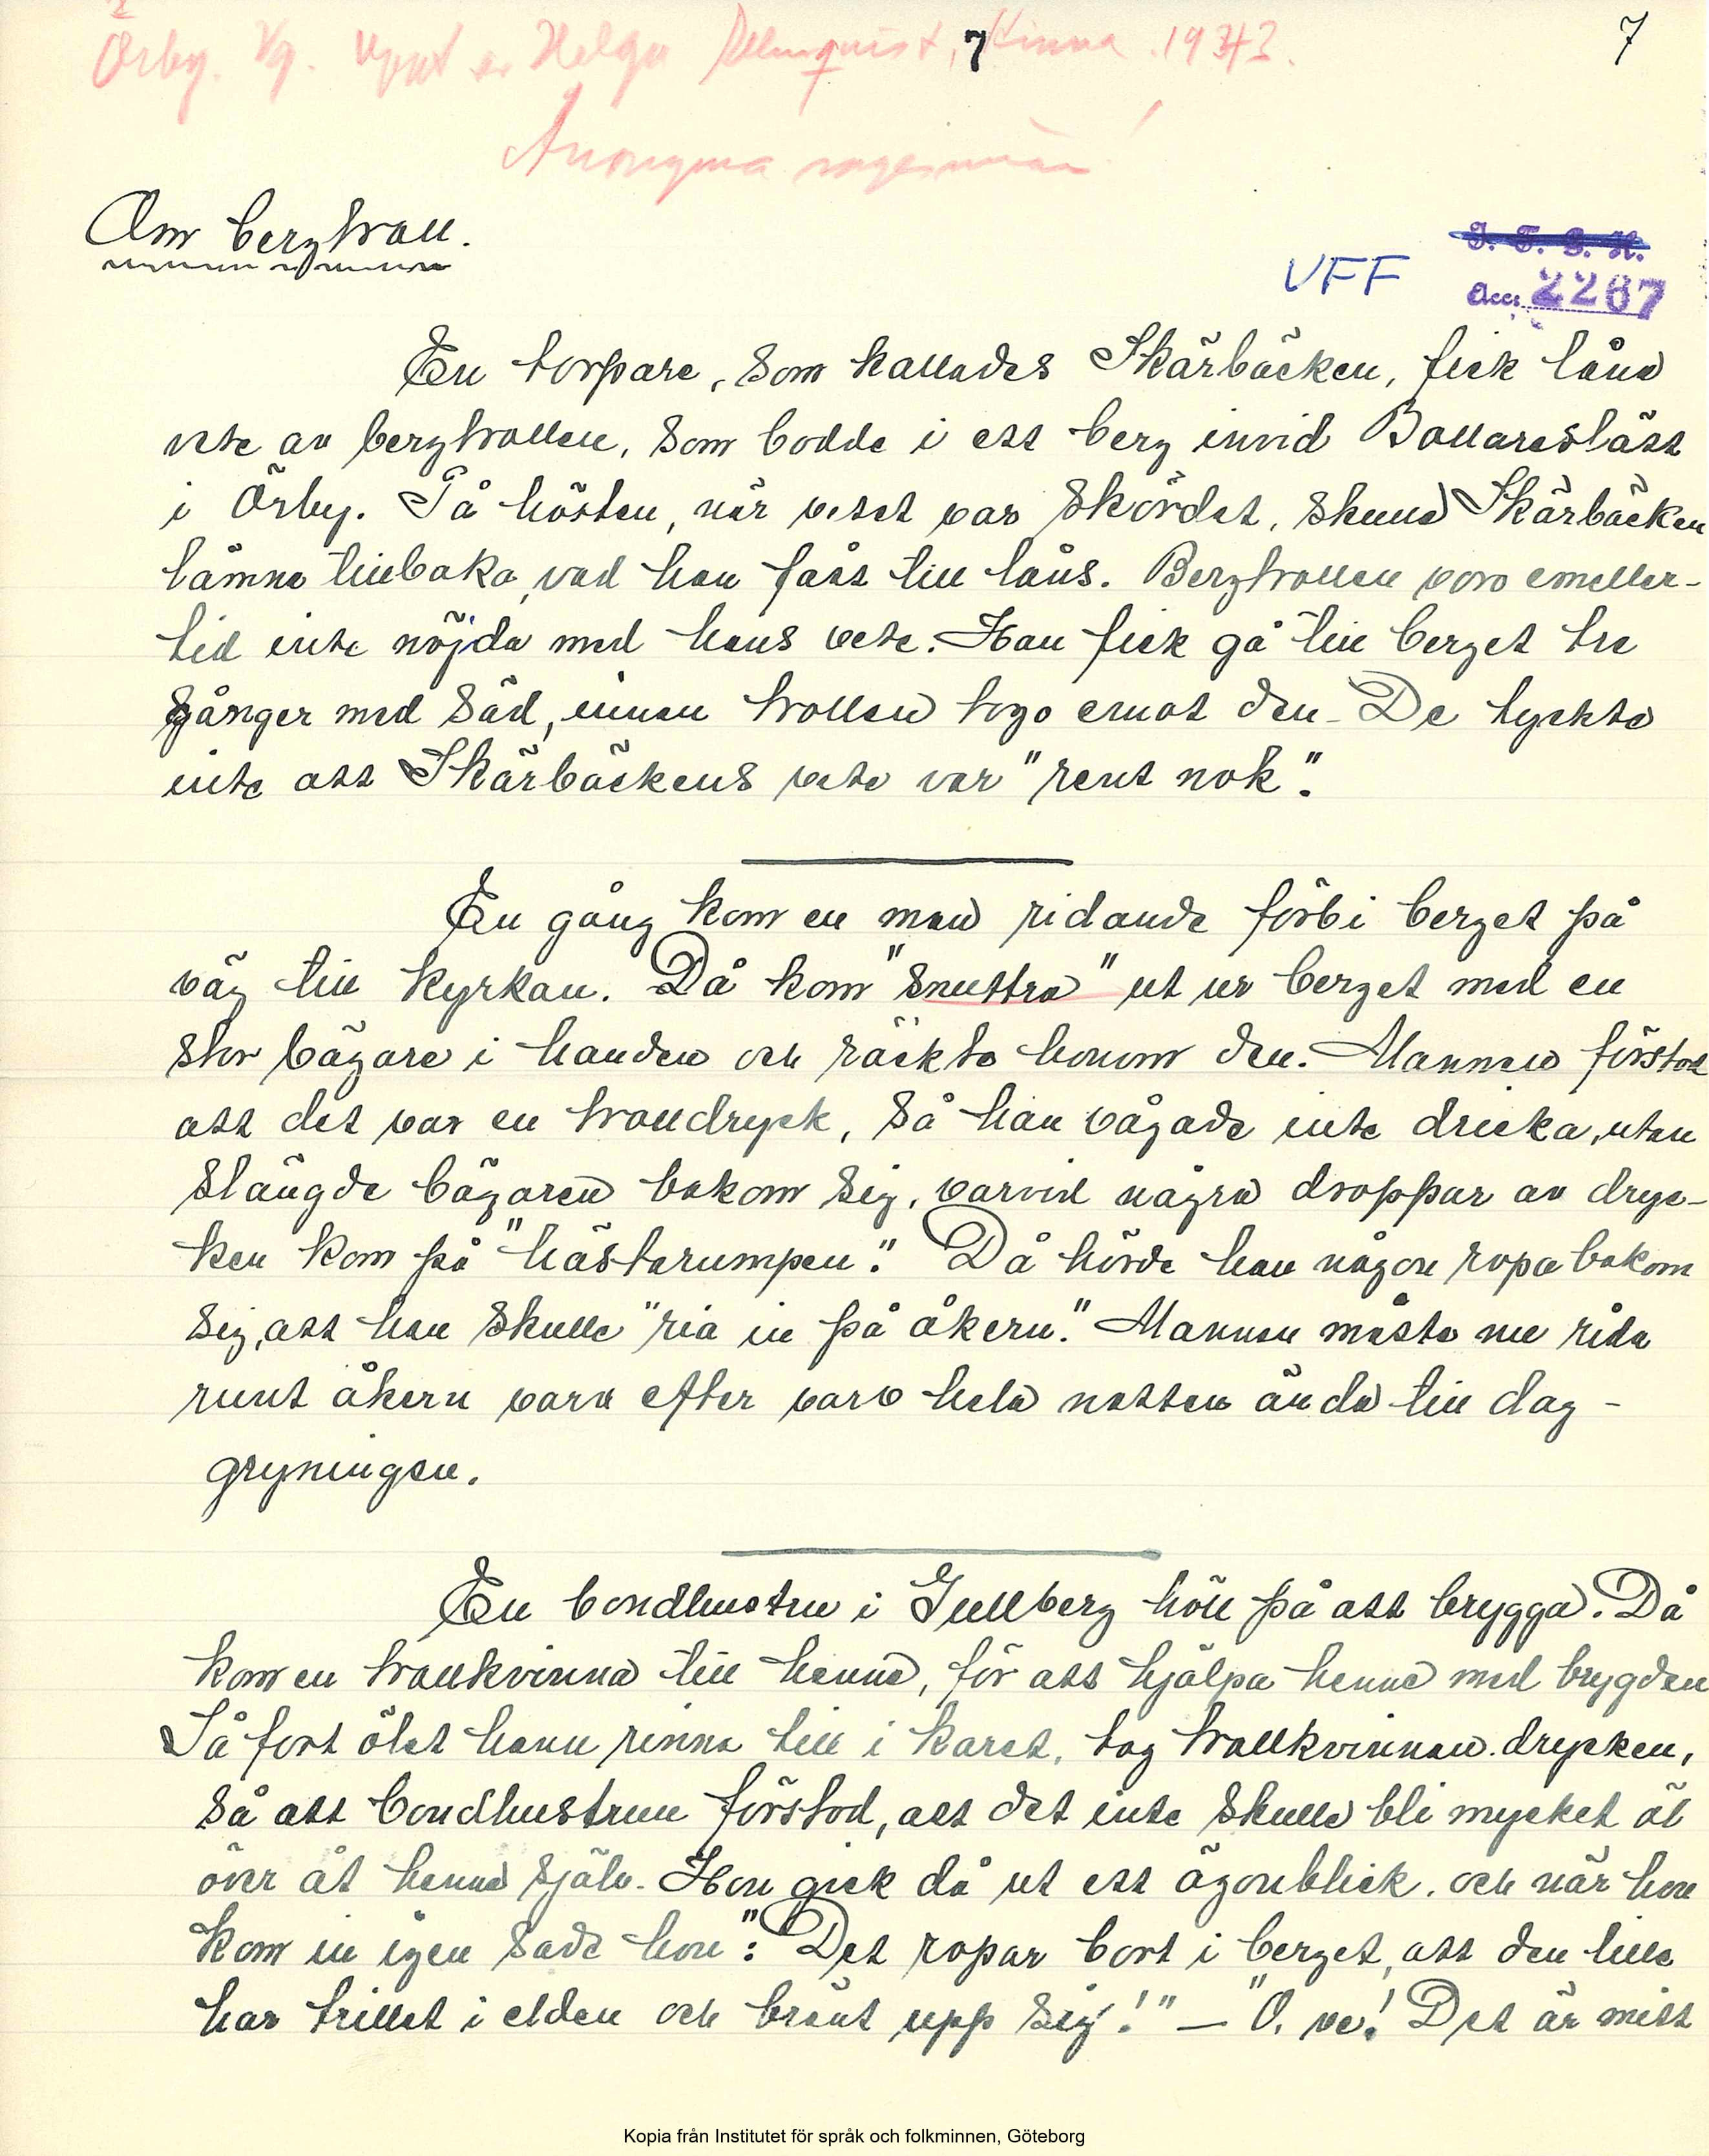 7
7
Örby. Vg. Uppt av Helga Almquist, Kinna. 1943.
Anonyma sagesmän!
Om bergtroll.
I. F. G. H.
VFF
Acc. 2267
En torpare, som kallades Skärbäcken, fick låna
vete av bergtrollen, som bodde i ett berg invid Bollareslätt
i Örby. På hösten, när vetet var skördat, skulle Skärbäcken
lämna tillbaka, vad han fått till låns. Bergtrollen voro emeller-
tid inte nöjda med hans vete. Han fick gå till berget tre
gånger med säd, innan trollen togo emot den. De tyckte
inte att Skärbäckens vete var "rent nok".
En gång kom en man ridande förbi berget på
väg till kyrkan. Då kom "snuttra" ut ur berget med en
stor bägare i handen och räckte honom den. Mannen förstod
att det var en trolldryck, så han vågade inte dricka, utan
slängde bägaren bakom sig, varvid några droppar av dryc-
ken kom på "hästarumpen". Då hörde han någon ropa bakom
sig, att han skulle "ria in på åkern". Mannen måste nu rida
runt åkern varv efter varv hela natten ända till dag-
gryningen.
En bondhustru i Gullberg höll på att brygga. Då
kom en trollkvinna till henne, för att hjälpa henne med brygden
Så fort ölet hann rinna till i karet, tog trollkvinnan drycken,
så att bondhustrun förstod, att det inte skulle bli mycket öl
över åt henne själv. Hon gick då ut ett ögonblick, och när hon
kom in igen sade hon: "Det ropar bort i berget, att den lille
har trillat i elden och bränt upp sig!" – "O, ve! Det är mitt
Kopia från Institutet för språk och folkminnen, Göteborg